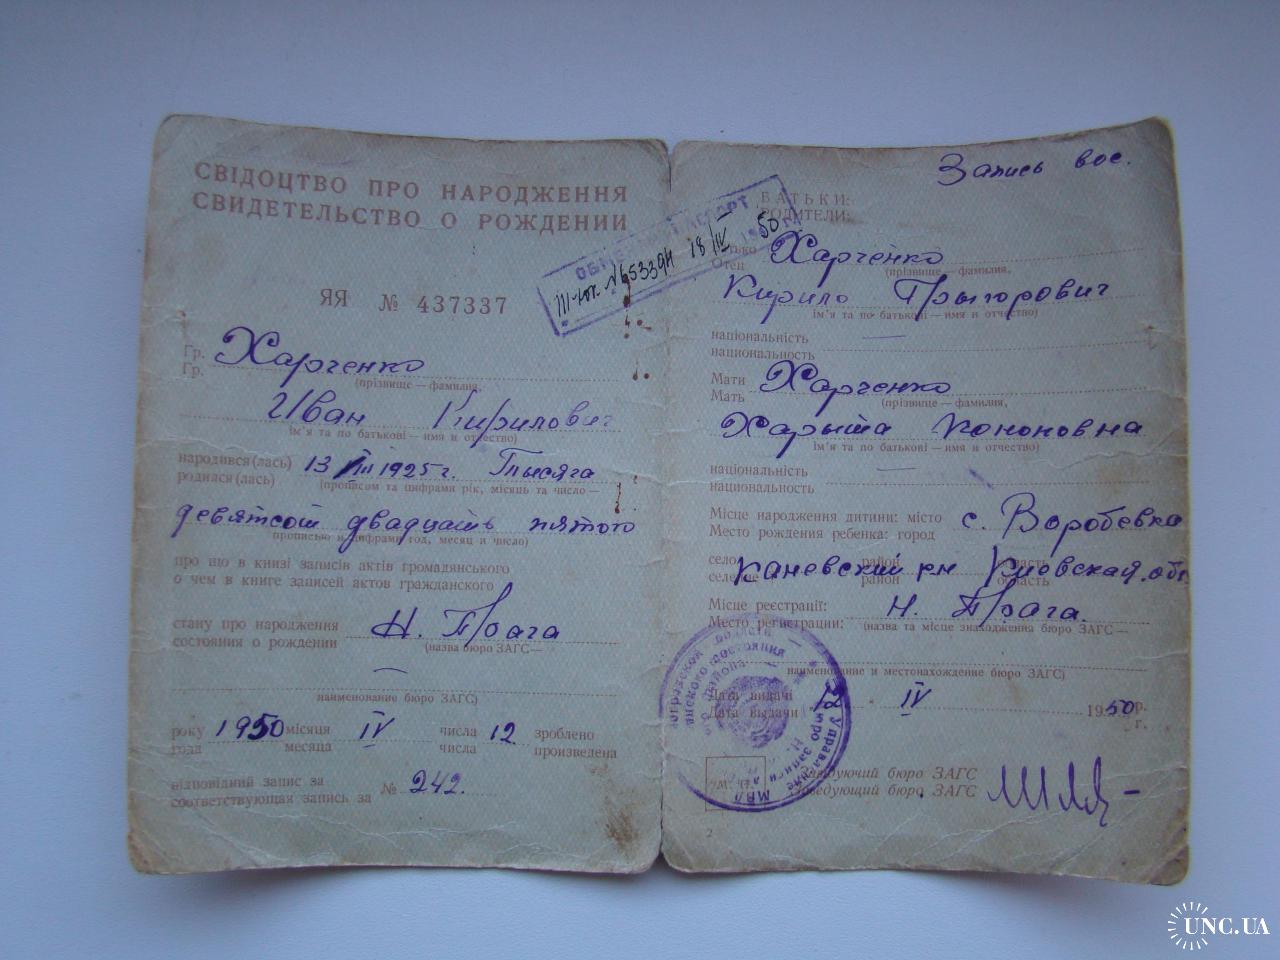 СВІДОЦТВО ПРО НАРОДЖЕННЯ
СВИДЕТЕЛЬСТВО О РОЖДЕНИИ
ЯЯ № 437337
Гр. Харченко
Гр.
(прізвище — фамилия,
Иван Кирилович
ім'я та по батькові — имя и отчество)
народився(лась) 13 III 1925 г. Тысяча
родился(лась)
(прописом та цифрами рік, місяць та число —
девятсот двадцать пятого
прописью и цифрами год, месяц и число)
про що в книзі записів актів громадянського
о чем в книге записей актов гражданского
стану про народження
состояния о рождении
Н. Прага
(назва бюро ЗАГС —
наименование бюро ЗАГС)
року 1950 місяця IV числа 12 зроблено
года месяца числа произведена
відповідний запис за
соответствующая запись за
№ 242.
50
18/IV
Запись вос.
БАТЬКИ:
РОДИТЕЛИ:
Батько Харченко
Отец
(прізвище — фамилия,
Кирило Грыгорович
ім'я та по батькові — имя и отчество)
національність —
национальность
Мати Харченко
Мать
(прізвище — фамилия,
Харыта Кононовна
ім'я та по батькові — имя и отчество)
національність —
национальность
Місце народження дитини: місто с. Воробевка
Место рождения ребенка: город
село район область
Каневский р-н Киевская обл
селение район область
Місце реєстрації: Н. Прага.
Место регистрации:
(назва та місце знаходження бюро ЗАГС —
наименование и местонахождение бюро ЗАГС)
Дата видачі 12 " IV 1950 р.
Дата выдачи г.
М. П.
Завідуючий бюро ЗАГС
Заведующий бюро ЗАГС
МВД
Управление
бюро записи
2
UNC.UA